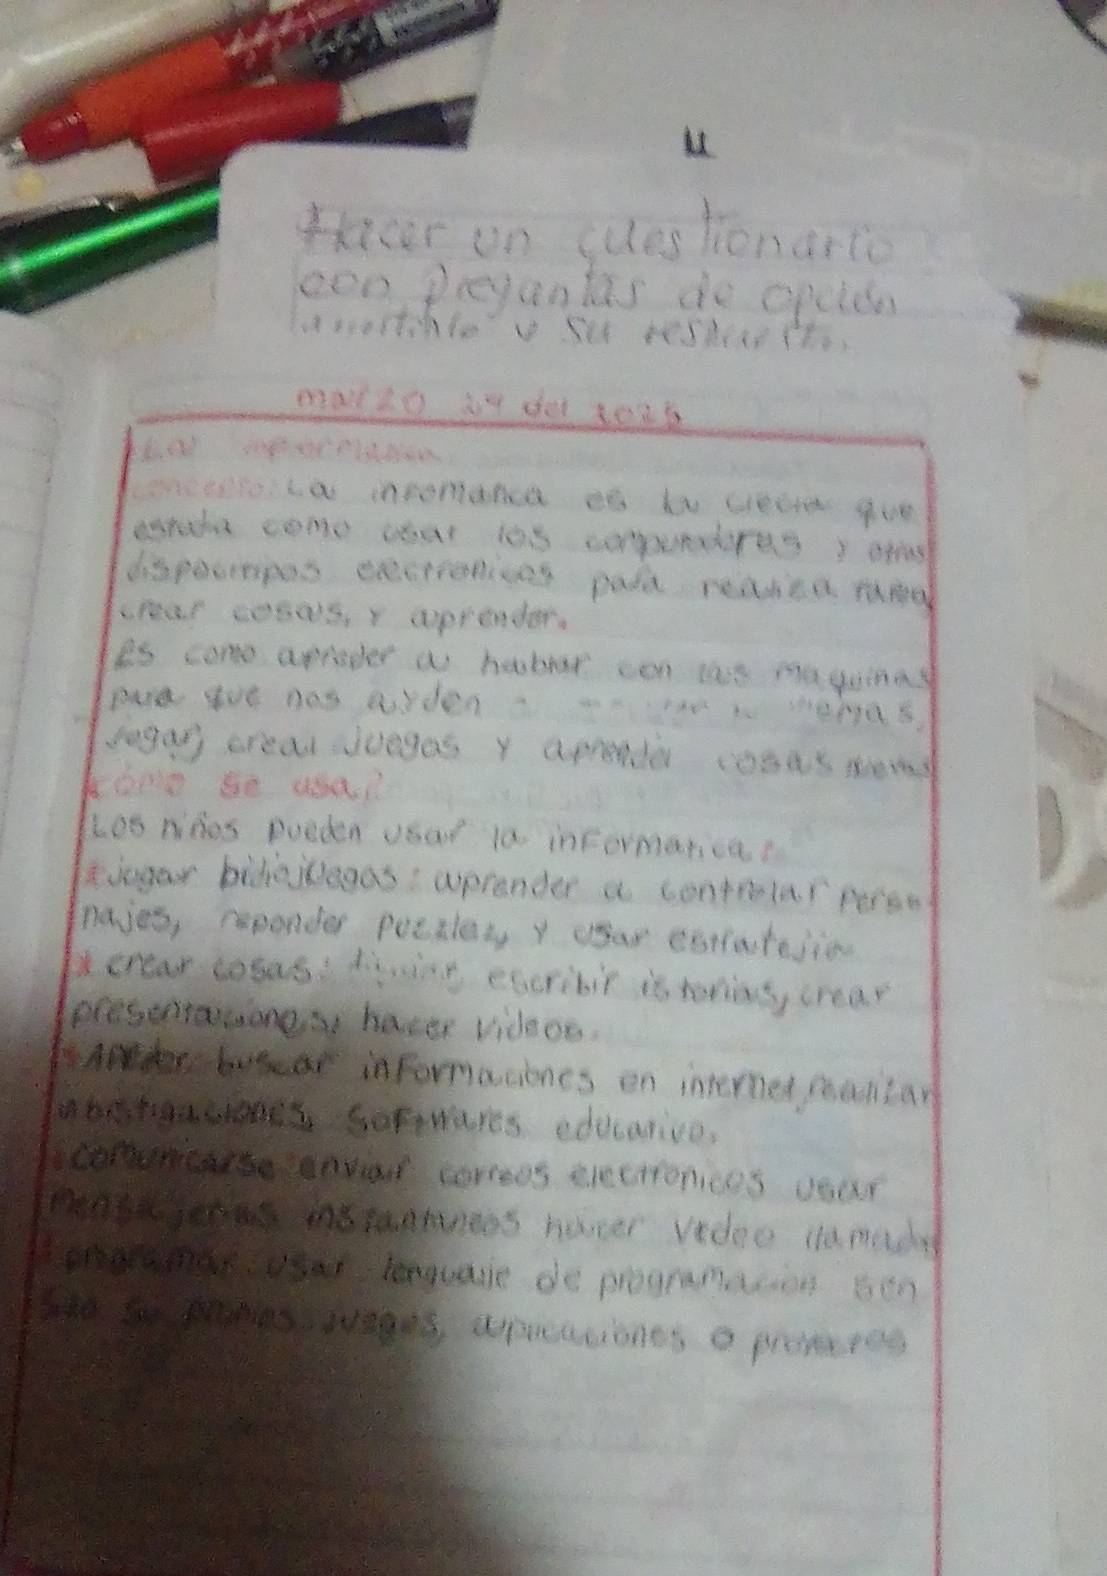 u
Hacer un cuestionario
con preguntas de opción
y su respuesta.
marzo 29 del 2025
La
concepto: La infomatica es la ciecia que
estudia como usar los computadores y otros
electronicos para realiza tarea
crear cosas, y aprender.
Es como apreder a hablar con las maquinas
para que nos ayden
jugar, crear juegos y aprender cosas
como se usa?
Los niños pueden usar la informatica:
*jugar bidiojuegos: aprender a controlar perso
najes, reponder puzzlez, y usar estratejia
* crear cosas: escribir istorias, crear
presentaciones, hacer videos.
buscar informaciones en internet, realizar
softwares educativo.
comunicarse enviar correos electronicos usar
mensajerias instantaneas hacer video llamada
programar: usar lenguaje de programacion
juegos, aplicaciones o